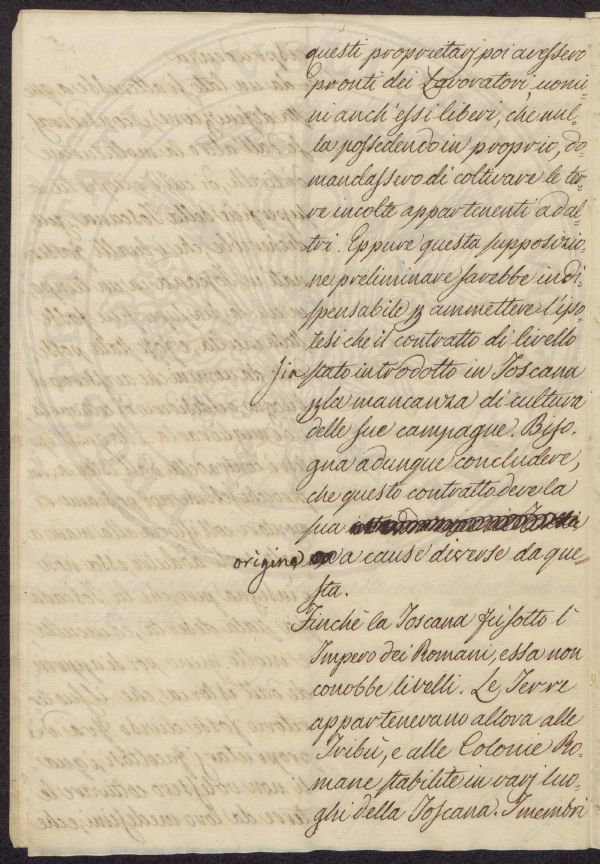 questi proprietarj poi avessero
pronti dei Lavoratori, uomi-
ni anch'essi liberi, che nul-
la possedendo in proprio, do-
mandassero di coltivare le ter-
re incolte appartenenti ad al-
tri. Eppure questa supposizio-
ne preliminare sarebbe indi-
spensabile p ammettere l'ipo-
tesi che il contratto di livello
sia stato introdotto in Toscana
p la mancanza di cultura
delle sue campagne. Biso-
gna adunque concludere,
che questo contratto deve la
sua
origine a cause diverse da que-
sta.
Finchè la Toscana fù sotto l'
Impero dei Romani, essa non
conobbe livelli. Le Terre
appartenevano allora alle
Tribù, e alle Colonie Ro-
mane stabilite in varj luo-
ghi della Toscana. I membri